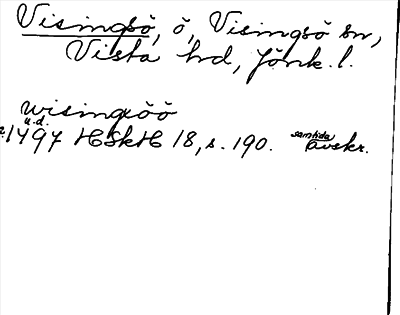 Visingsö, ö, Visingsö sn,
Vista hd, Jönk. l.
wisingxöö
u.d.
1497 HSkH 18, s. 190. samtida avskr.